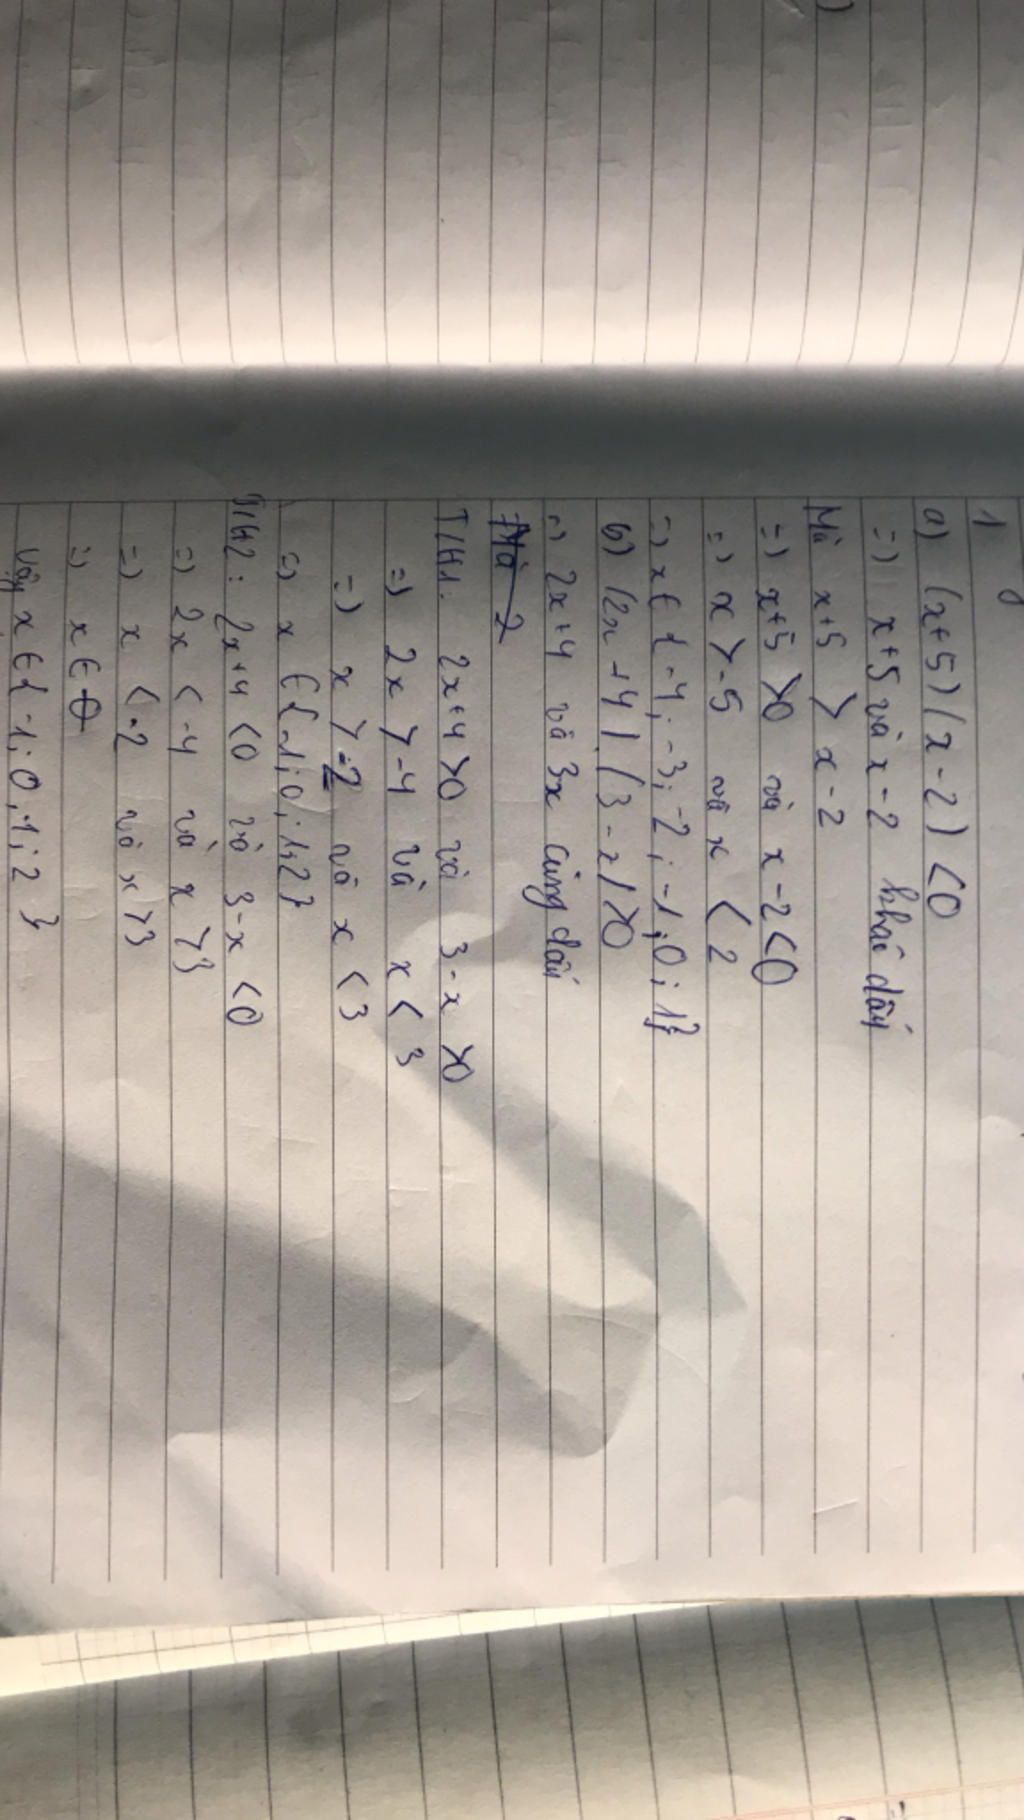 1
a) (x+5)(x-2) <0
=) x+5 và x-2 khác dấu
Mà x+5 > x-2
=) x+5 >0 và x-2<0
=) x >-5 và x < 2
=) x ∈ {-4; -3; -2; -1; 0; 1}
b) (2x+4)(3-x) >0
=) 2x+4 và 3x cùng dấu
Mà 2
TH1: 2x+4 >0 và 3-x >0
=) 2x >-4 và x < 3
=) x >-2 và x <3
=) x ∈ {-1; 0; 1; 2}
TH2: 2x+4 <0 và 3-x <0
=) 2x <-4 và x >3
=) x <-2 và x >3
=) x ∈ ∅
Vậy x ∈ {-1; 0; 1; 2}